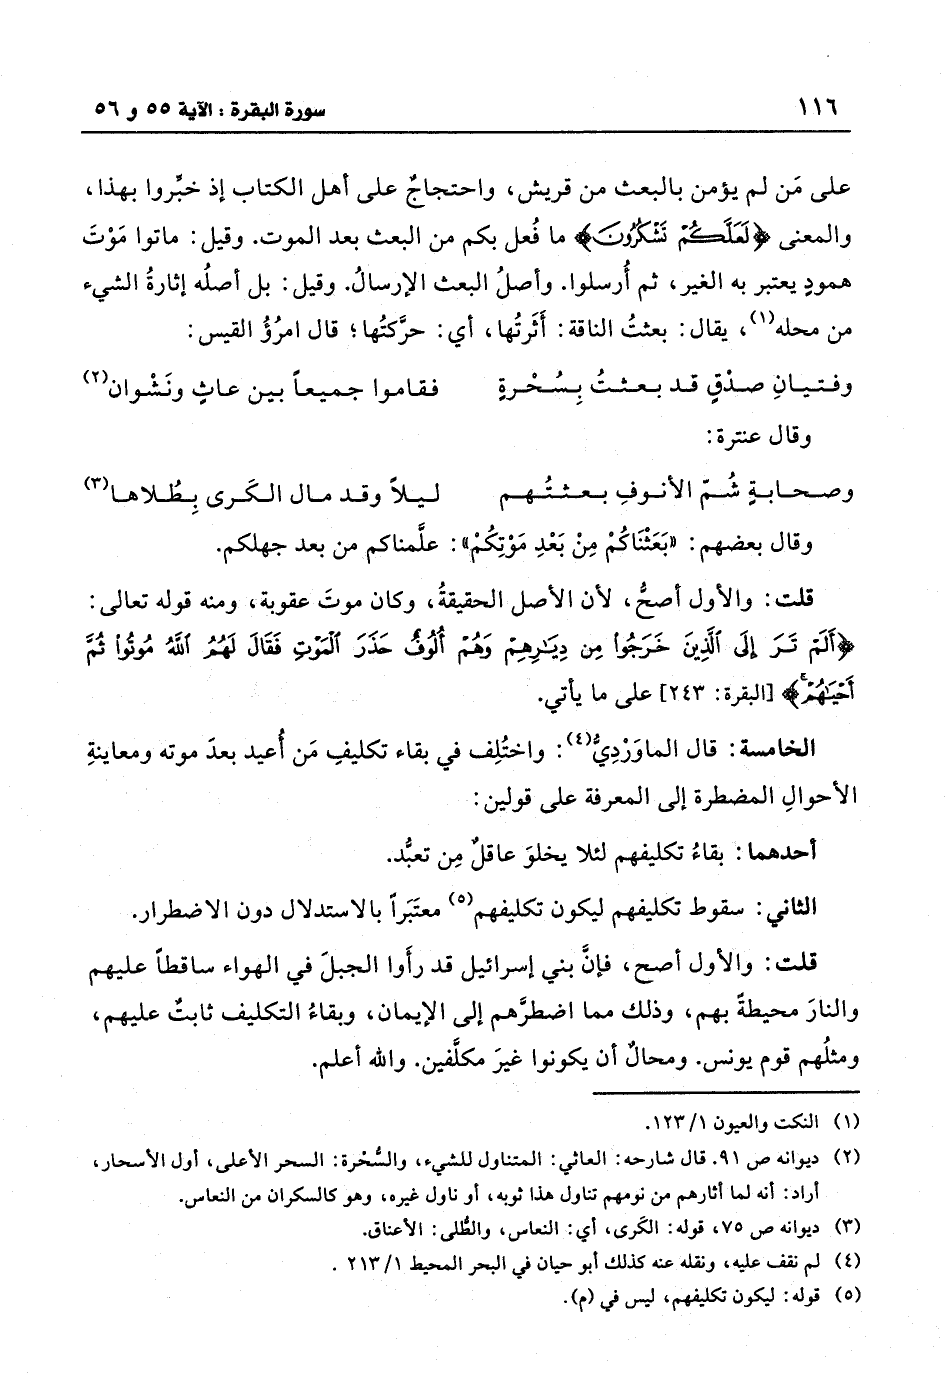 ١١٦
سورة البقرة : الآية ٥٥ و ٥٦
على مَن لم يؤمن بالبعث من قريش، واحتجاجٌ على أهل الكتاب إذ خبِّروا بهذا،
والمعنى ﴿لَعَلَّكُمْ تَشْكُرُونَ﴾ ما فُعل بكم من البعث بعد الموت. وقيل: ماتوا مَوْتَ
همودٍ يعتبر به الغير، ثم أُرسلوا. وأصلُ البعث الإرسالُ. وقيل: بل أصلُه إثارةُ الشيء
من محله(١)، يقال: بعثتُ الناقة: أَثَرتُها، أي: حرَّكتُها؛ قال امرُؤُ القيس:
وفتيانِ صدْقٍ قد بعثتُ بِسُحْرةٍ فقاموا جميعاً بين عاثٍ ونَشْوان(٢)
وقال عنترة:
وصحابةٍ شُمّ الأنوفِ بعثتُهم ليلاً وقد مال الكَرى بِطُلاها(٣)
وقال بعضهم: «بَعَثْنَاكُمْ مِنْ بَعْدِ مَوْتِكُمْ»: علَّمناكم من بعد جهلكم.
قلت: والأول أصحُّ، لأن الأصل الحقيقةُ، وكان موتَ عقوبة، ومنه قوله تعالى:
﴿أَلَمْ تَرَ إِلَى ٱلَّذِينَ خَرَجُوا۟ مِن دِيَـٰرِهِمْ وَهُمْ أُلُوفٌ حَذَرَ ٱلْمَوْتِ فَقَالَ لَهُمُ ٱللَّهُ مُوتُوا۟ ثُمَّ
أَحْيَـٰهُمْۚ﴾ [البقرة: ٢٤٣] على ما يأتي.
الخامسة: قال الماوَرْدِيُّ(٤): واختُلِف في بقاء تكليفِ مَن أُعيد بعدَ موته ومعاينةِ
الأحوالِ المضطرة إلى المعرفة على قولين:
أحدهما: بقاءُ تكليفهم لئلا يخلوَ عاقلٌ مِن تعبُّد.
الثاني: سقوط تكليفهم ليكون تكليفهم(٥) معتبَراً بالاستدلال دون الاضطرار.
قلت: والأول أصح، فإنَّ بني إسرائيل قد رأَوا الجبلَ في الهواء ساقطاً عليهم
والنارَ محيطةً بهم، وذلك مما اضطرَّهم إلى الإيمان، وبقاءُ التكليف ثابتٌ عليهم،
ومثلُهم قوم يونس. ومحالٌ أن يكونوا غيرَ مكلَّفين. والله أعلم.
(١) النكت والعيون ١/ ١٢٣.
(٢) ديوانه ص ٩١. قال شارحه: العاثي: المتناول للشيء، والسُّحْرة: السحر الأعلى، أول الأسحار،
أراد: أنه لما أثارهم من نومهم تناول هذا ثوبه، أو ناول غيره، وهو كالسكران من النعاس.
(٣) ديوانه ص ٧٥، قوله: الكَرى، أي: النعاس، والطُّلى: الأعناق.
(٤) لم نقف عليه، ونقله عنه كذلك أبو حيان في البحر المحيط ١/ ٢١٣ .
(٥) قوله: ليكون تكليفهم، ليس في (م).